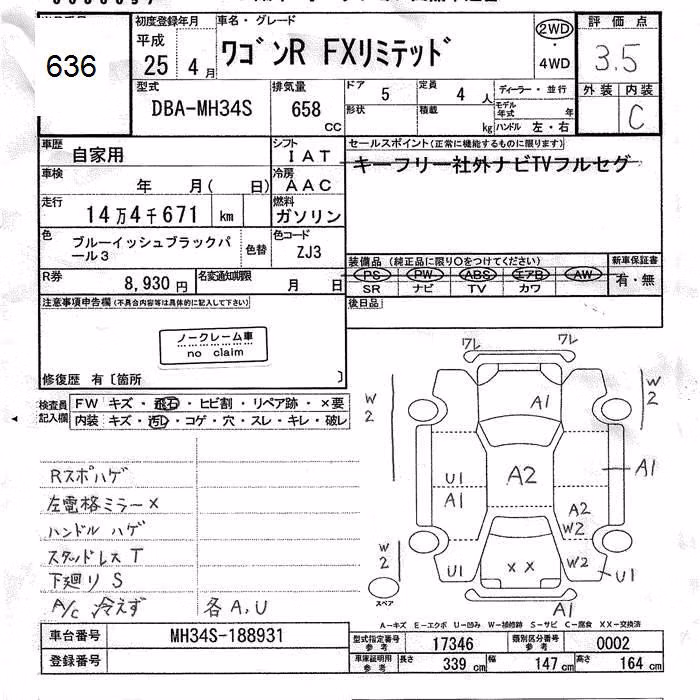 636
初度登録年月
平成
25 4 月
車名・グレード
ワゴンR FXリミテッド
2WD
・
4WD
評価点
3.5
外装 内装
C
型式
DBA-MH34S
排気量
658
CC
ドア
5
定員
4 人
形状
積載
kg
ディーラー・並行
モデル年式 年
ハンドル 左・右
車歴
自家用
シフト
IAT
車検
年 月( 日)
冷房
AAC
走行
14万4千671 km
燃料
ガソリン
色
ブルーイッシュブラックパール3
色替
色コード
ZJ3
R券
8,930円
名変通知期限
月 日
セールスポイント(正常に機能するものに限ります)
キーフリー社外ナビTVフルセグ
装備品(純正品に限り○をつけてください)
新車保証書
PS PW ABS エアB AW
SR ナビ TV カワ
有・無
後日品
注意事項申告欄(不具合内容等は具体的に記入して下さい)
ノークレーム車
no claim
修復歴 有〔箇所 〕
検査員
記入欄
FW キズ・飛石・ヒビ割・リペア跡・×要
内装 キズ・汚レ・コゲ・穴・スレ・キレ・破レ
Rスポハゲ
左電格ミラー×
ハンドルハゲ
スタッドレスT
下廻りS
A/C 冷えず
各A,U
ワレ ワレ
W2
W2
A1
U1
A1
A2
A1
A2
W2
W2
W2
U1
××
U1
A1
スペア
A-キズ E-エクボ U-凹み W-補修跡 S-サビ C-腐食 XX-交換済
車台番号
MH34S-188931
登録番号
型式指定番号
参考
17346
類別区分番号
参考
0002
車庫証明用
参考
長さ
339 cm
幅
147 cm
高さ
164 cm